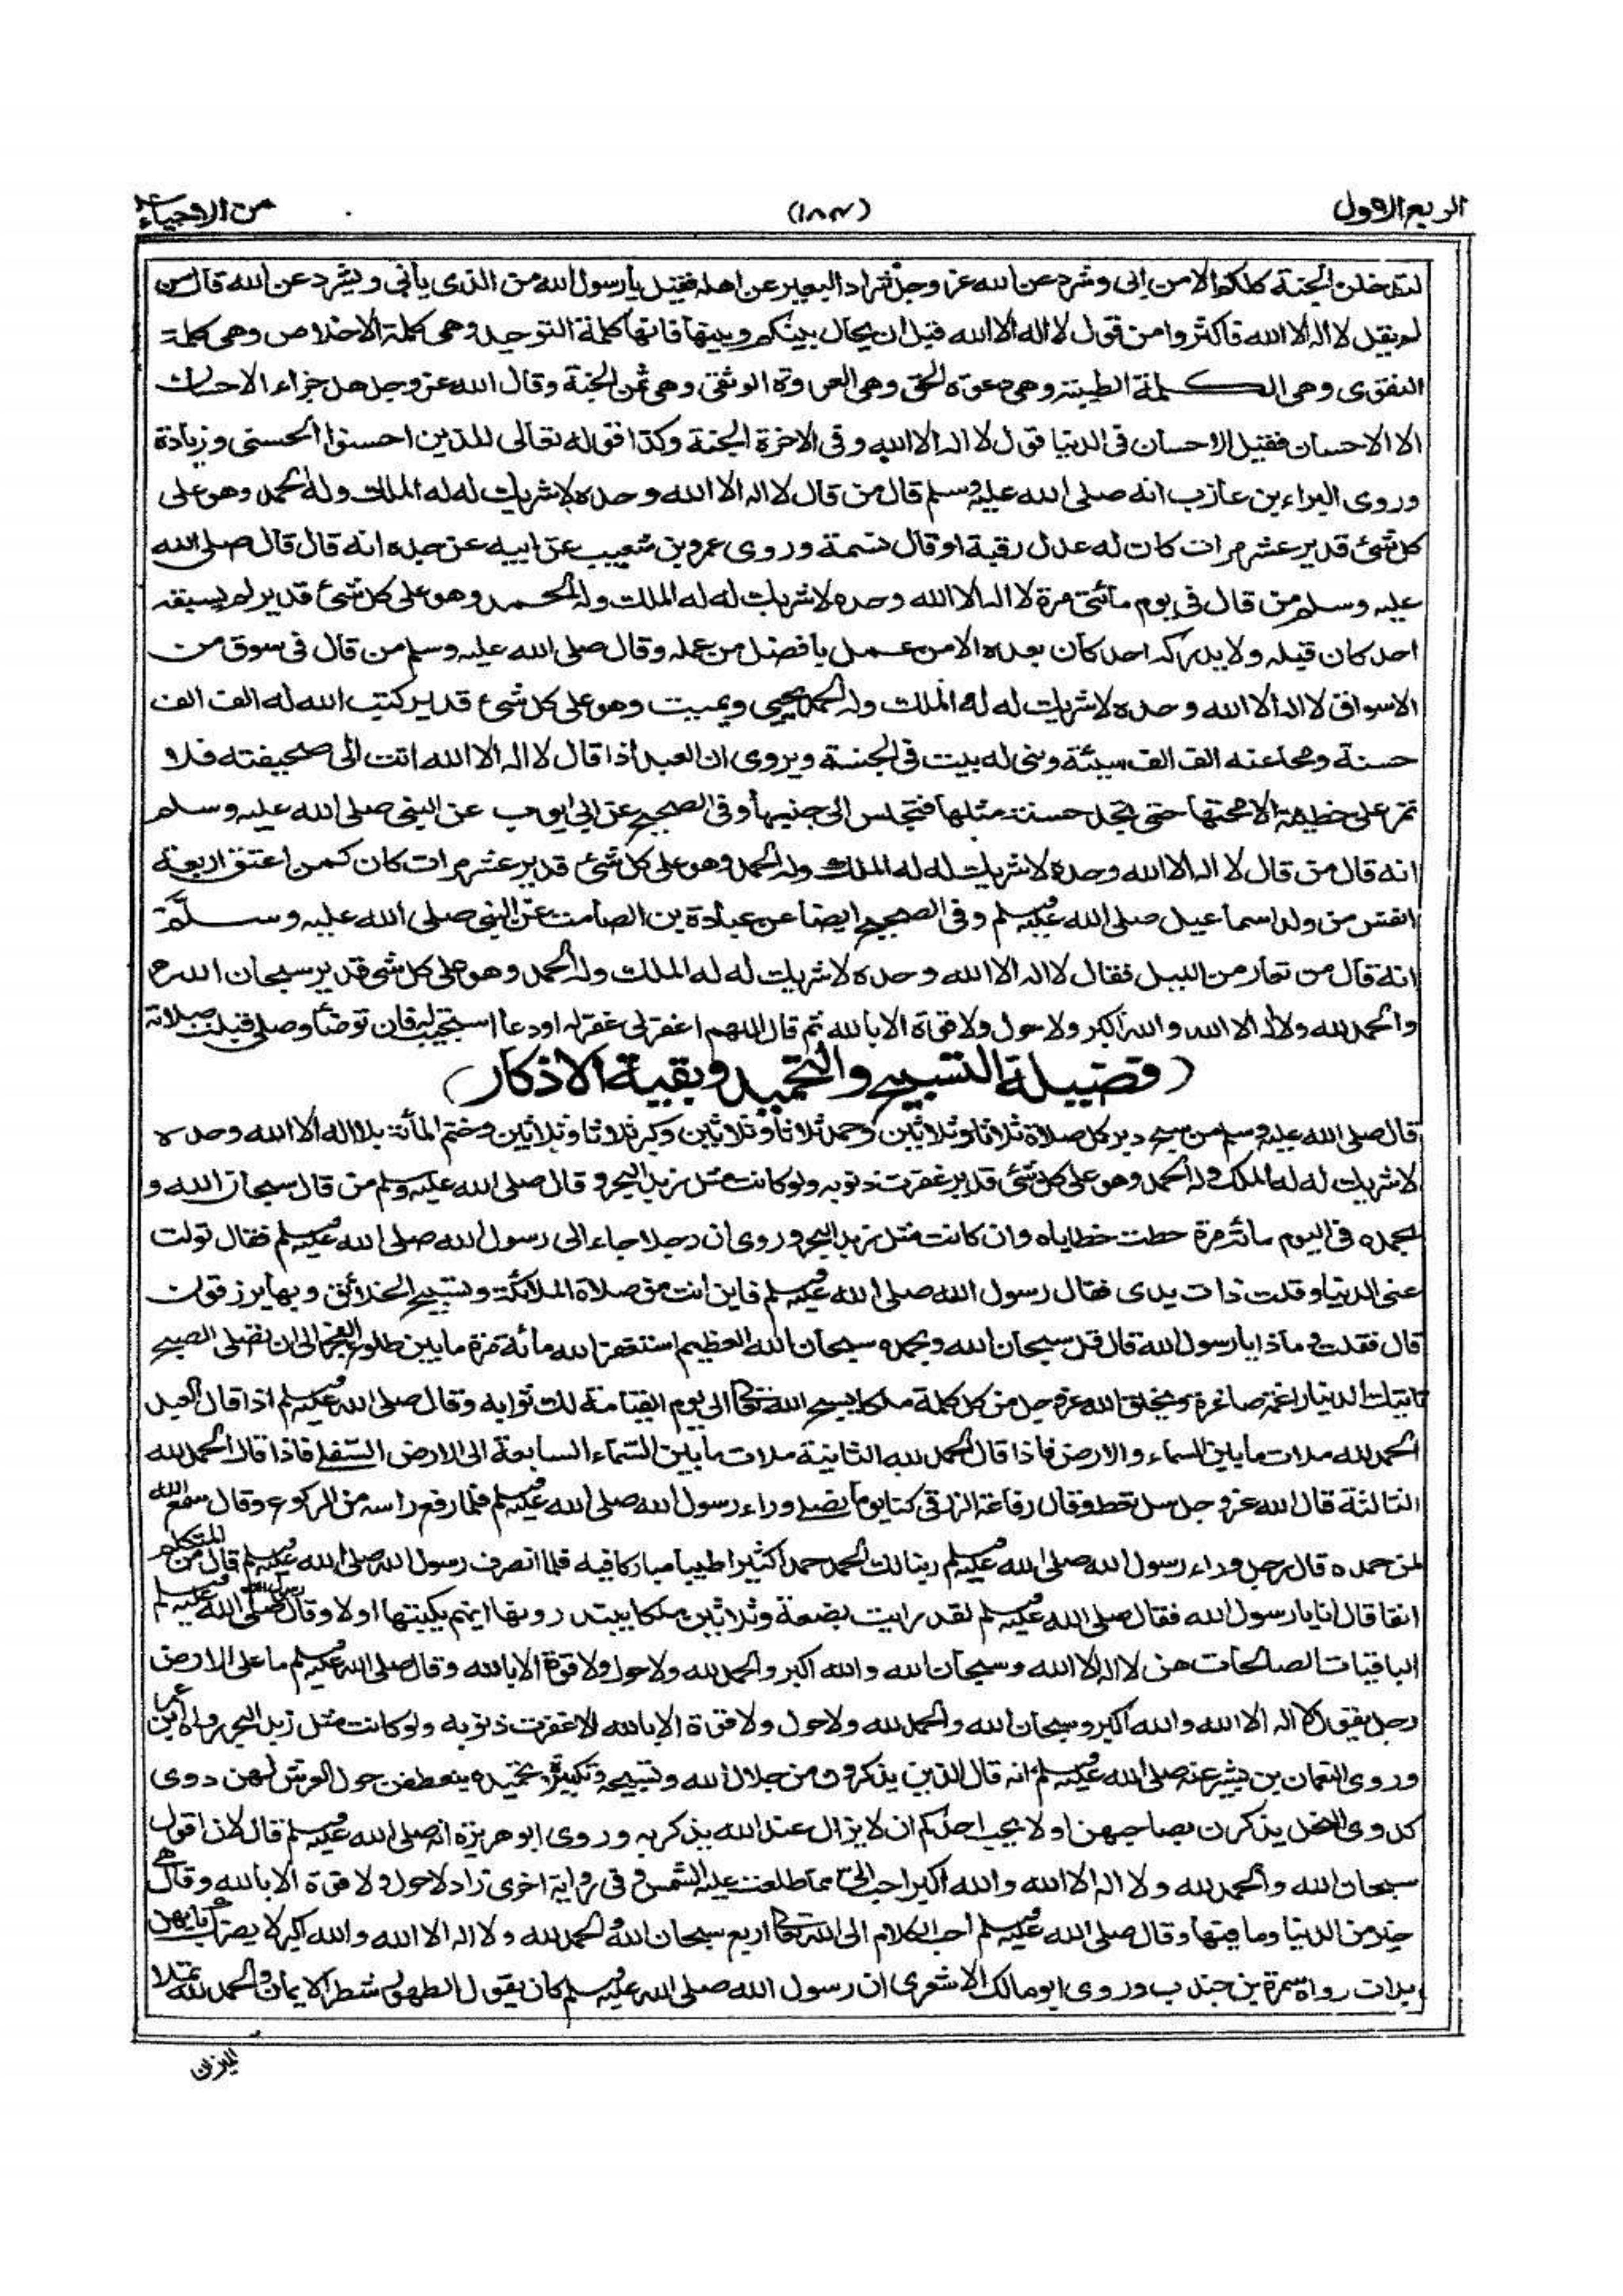 الربع الاول
(١٨٣)
من الاحياء
لتدخلن الجنة كلكم الا من ابى وشرد عن الله عز وجل شراد البعير عن اهله فقيل يا رسول الله من الذى يأبى ويشرد عن الله قال من
لم يقل لا اله الا الله فاكثروا من قول لا اله الا الله قبل ان يحال بينكم وبينها فانها كلمة التوحيد وهى كلمة الاخلاص وهى كلمة
التقوى وهى الكلمة الطيبة وهى دعوة الحق وهى العروة الوثقى وهى ثمن الجنة وقال الله عز وجل هل جزاء الاحسان
الا الاحسان فقيل الاحسان فى الدنيا قول لا اله الا الله وفى الاخرة الجنة وكذا قوله تعالى للذين احسنوا الحسنى وزيادة
وروى البراء بن عازب انه صلى الله عليه وسلم قال من قال لا اله الا الله وحده لا شريك له له الملك وله الحمد وهو على
كل شئ قدير عشر مرات كان له عدل رقبة او قال نسمة وروى عمرو بن شعيب عن ابيه عن جده انه قال قال صلى الله
عليه وسلم من قال فى يوم مائتى مرة لا اله الا الله وحده لا شريك له له الملك وله الحمد وهو على كل شئ قدير لم يسبقه
احد كان قبله ولا يدركه احد كان بعده الا من عمل بافضل من عمله وقال صلى الله عليه وسلم من قال فى سوق من
الاسواق لا اله الا الله وحده لا شريك له له الملك وله الحمد يحيى ويميت وهو على كل شئ قدير كتب الله له الف الف
حسنة ومحا عنه الف الف سيئة وبنى له بيت فى الجنة ويروى ان العبد اذا قال لا اله الا الله اتت الى صحيفته فلا
تمر على خطيئة الا محتها حتى تجد حسنة مثلها فتجلس الى جنبها وفى الصحيح عن ابى ايوب عن النبى صلى الله عليه وسلم
انه قال من قال لا اله الا الله وحده لا شريك له له الملك وله الحمد وهو على كل شئ قدير عشر مرات كان كمن اعتق اربعة
انفس من ولد اسماعيل صلى الله عليه وسلم وفى الصحيح ايضا عن عبادة بن الصامت عن النبى صلى الله عليه وسلم
انه قال من تعار من الليل فقال لا اله الا الله وحده لا شريك له له الملك وله الحمد وهو على كل شئ قدير سبحان الله
والحمد لله ولا اله الا الله والله اكبر ولا حول ولا قوة الا بالله ثم قال اللهم اغفر لى غفر له او دعا استجيب له فان توضأ وصلى قبلت صلاته
(فضيلة التسبيح والتحميد وبقية الاذكار)
قال صلى الله عليه وسلم من سبح دبر كل صلاة ثلاثا وثلاثين وحمد ثلاثا وثلاثين وكبر ثلاثا وثلاثين وختم المائة بلا اله الا الله وحده
لا شريك له له الملك وله الحمد وهو على كل شئ قدير غفرت ذنوبه ولو كانت مثل زبد البحر وقال صلى الله عليه وسلم من قال سبحان الله و
بحمده فى اليوم مائة مرة حطت خطاياه وان كانت مثل زبد البحر وروى ان رجلا جاء الى رسول الله صلى الله عليه وسلم فقال تولت
عنى الدنيا وقلت ذات يدى فقال رسول الله صلى الله عليه وسلم فاين انت من صلاة الملائكة وتسبيح الخلائق وبها يرزقون
قال فقلت وماذا يا رسول الله قال قل سبحان الله وبحمده سبحان الله العظيم استغفر الله مائة مرة ما بين طلوع الفجر الى ان تصلى الصبح
تاتيك الدنيا راغمة صاغرة ويخلق الله عز وجل من كل كلمة ملكا يسبح الله تعالى الى يوم القيامة لك ثوابه وقال صلى الله عليه وسلم اذا قال العبد
الحمد لله ملات ما بين السماء والارض فاذا قال الحمد لله الثانية ملات ما بين السماء السابعة الى الارض السفلى فاذا قال الحمد لله
الثالثة قال الله عز وجل سل تعط وقال رفاعة الزرقى كنا يوما نصلى وراء رسول الله صلى الله عليه وسلم فلما رفع راسه من الركوع وقال سمع الله
لمن حمده قال رجل وراء رسول الله صلى الله عليه وسلم ربنا لك الحمد حمدا كثيرا طيبا مباركا فيه فلما انصرف رسول الله صلى الله عليه وسلم قال من المتكلم
انفا قال انا يا رسول الله فقال صلى الله عليه وسلم لقد رايت بضعة وثلاثين ملكا يبتدرونها ايهم يكتبها اولا وقال رسول الله صلى الله عليه وسلم
الباقيات الصالحات هن لا اله الا الله وسبحان الله والله اكبر والحمد لله ولا حول ولا قوة الا بالله وقال صلى الله عليه وسلم ما على الارض
رجل يقول لا اله الا الله والله اكبر وسبحان الله والحمد لله ولا حول ولا قوة الا بالله الا غفرت ذنوبه ولو كانت مثل زبد البحر رواه ابن عمر
وروى النعمان بن بشير عنه صلى الله عليه وسلم انه قال الذين يذكرون من جلال الله وتسبيحه وتكبيره وتحميده ينعطفن حول العرش لهن دوى
كدوى النحل يذكرن بصاحبهن اولا يحب احدكم ان لا يزال عند الله يذكر به وروى ابو هريرة انه صلى الله عليه وسلم قال لان اقول
سبحان الله والحمد لله ولا اله الا الله والله اكبر احب الى مما طلعت عليه الشمس وفى رواية اخرى زاد لا حول ولا قوة الا بالله وقال هى
خير من الدنيا وما فيها وقال صلى الله عليه وسلم احب الكلام الى الله تعالى اربع سبحان الله والحمد لله ولا اله الا الله والله اكبر لا يضرك بايهن
بدات رواه سمرة بن جندب وروى ابو مالك الاشعرى ان رسول الله صلى الله عليه وسلم كان يقول الطهور شطر الايمان والحمد لله تملا
الميزان